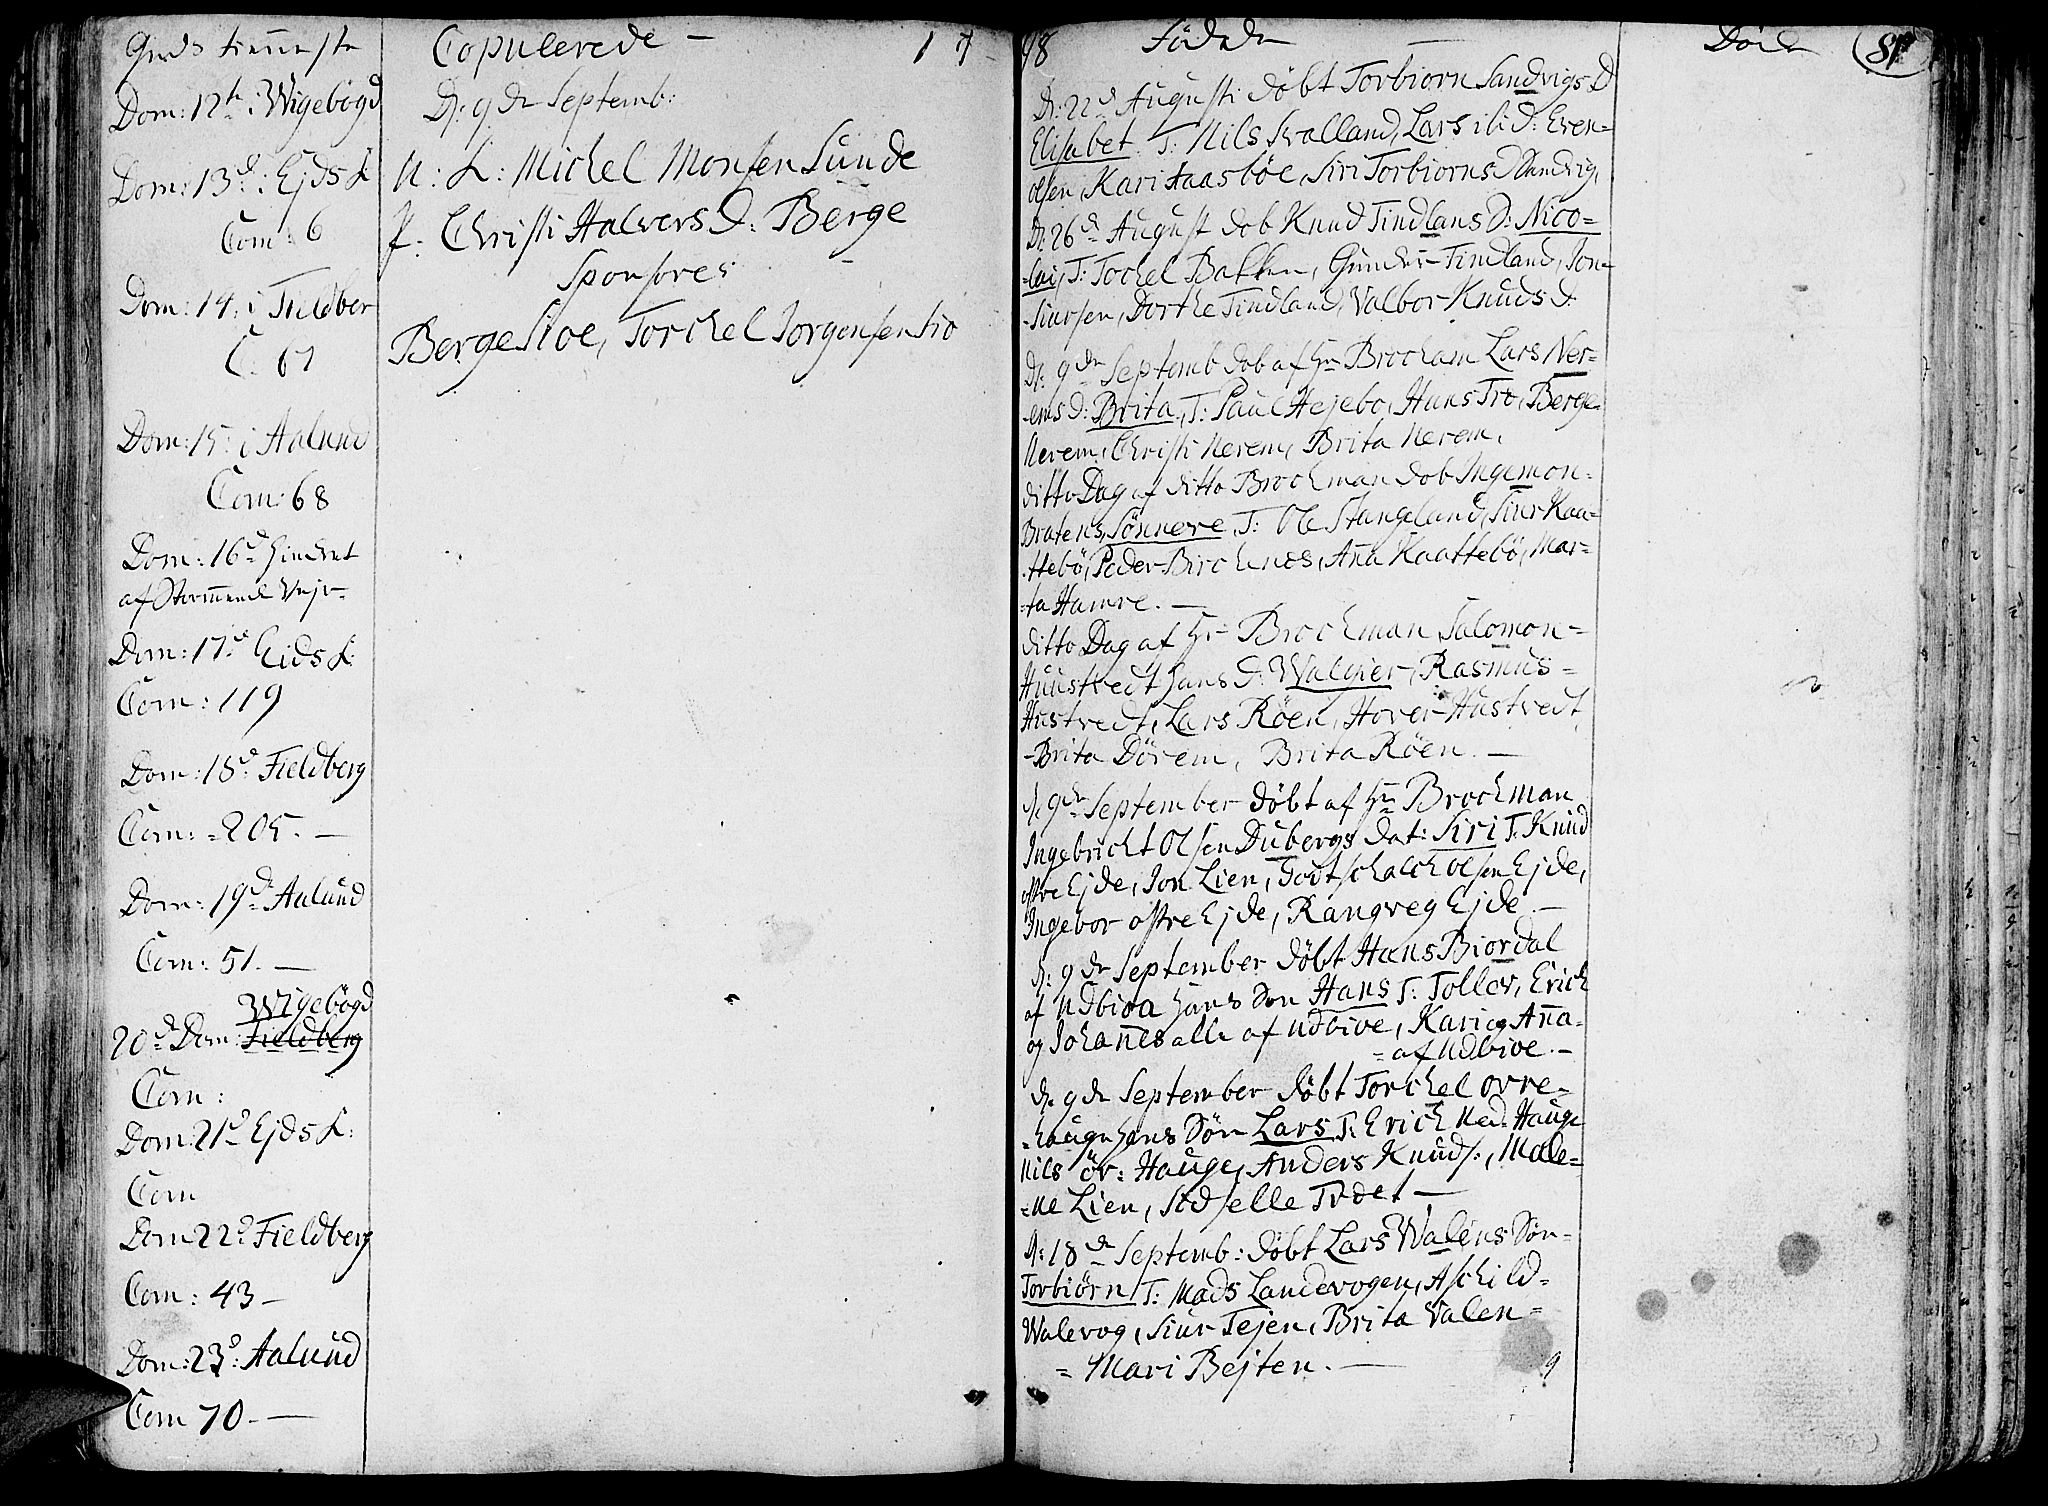 Guds tienneste
Dom: 12te i Wigebögd
Dom: 13de: Ejds k:
Com: 6
Dom: 14: i Fieldber
C: 67
Dom: 15: i Aalund
Com: 68
Dom: 16d hindret
af Stormende Vejr
Dom: 17de Eids k:
Com: 119
Dom: 18d: Fieldberg
Com: = 205. —
Dom: 19de Aalund
Com: 51. —
Wigebögd
20de Dom: Fieldberg
Com:
Dom: 21d Ejds k:
Com
Dom 22d: Fieldberg
Com: 43 —
Dom: 23d: Aalund
Com 70 —
Copulerede — 17
D: 9de Septemb:
U: K: Michel Monsen Sunde
P: Christi Halvers D: Berge
Sponsores
Berge Sioe, Torchel Jorgensen Sio
98 Födde — Döde 81
D: 22d Augusti döbt Torbiorn Sandvigs D
Elisabet. T: Nils Svalland, Lars ibid: Even=
olsen, Kari Haasböe, Siri Torbiorns D Sandvig,
D: 26d August döb Knud Tindlans D: Nico=
laij T: Tochel Bakken, Gunder Tindland, Jon
Siursen, Dorthe Tindland, Valbor Knuds D:
D: 9de Septemb döb af Hr Brochman Lars Ner=
ems D: Brita, T: Paul Hejebo, Hans Tro, Berge
Nerem, Christi Nerem, Brita Nerem,
ditto Dag af ditto Brochman döb Ingemon
Bratens, Sönnere, T: Ole Stangeland, Siur Kaa=
ttebö, Peder Birchenes, Anna Kaattebö, Mar=
ta Hamre. —
ditto Dag af Hr Brochman Salomon
Huustvedt hans D: Walgier, Rasmus
Hustvedt, Lars Röen, Hover Hustvedt,
Brita Dörem, Brita Röen. —
d: 9de September döbt af Hr Brochman
Ingebricht Olsen Dubergs dat: Siri T: Knud
østre Ejde, Jon Lien, Godtschalch Olsen Ejde,
Ingebor østre Ejde, Rangveg Ejde —
d: 9de September döbt Hans Biordal
af Udbioa hans Sön Hans T: Toller, Erich
og Johannes alle af Udbioe, Kari og Anna
= af Udbioe. —
d: 9de September döbt Torchel ovre=
=haugn hans Sön Lars T: Erich Ned: Hauge
Nils öv: Hauge, Anders Knuds:, Male=
=ne Lien, Sidselle Trdet —
d: 18de Septemb: döbt Lars Walens Sön
Torbiörn T: Mads Landevogen, Aschild
Walevog, Siur Tejen, Brita Valen
= Mari Bejten. — 9